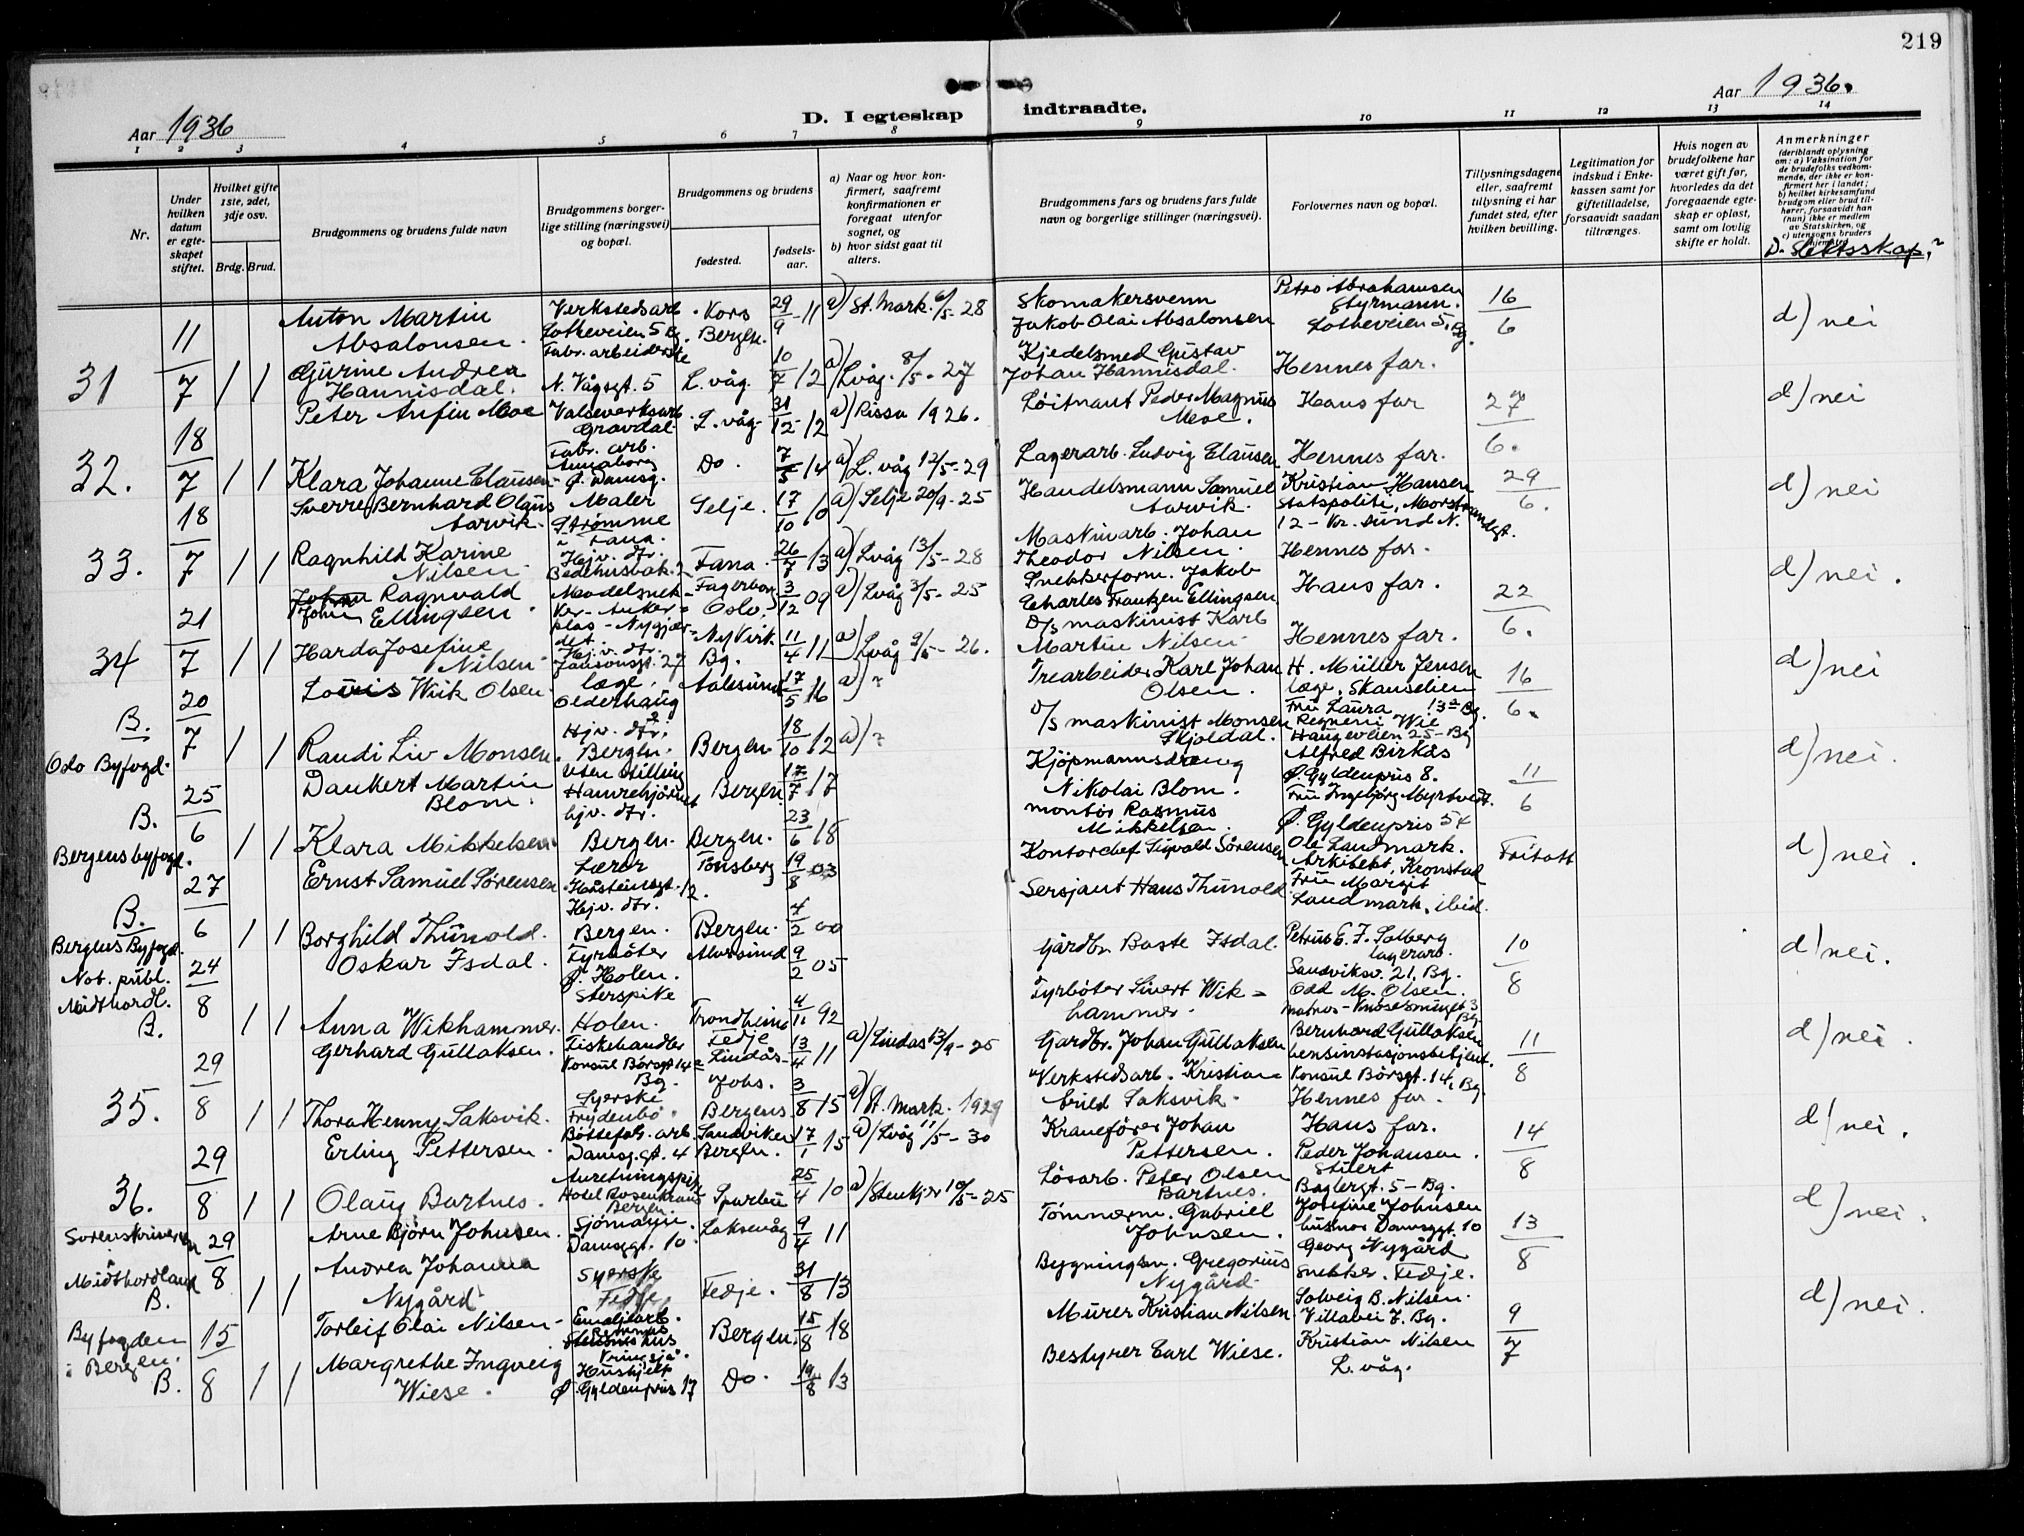 219
Aar 1936
D. I egteskap indtraadte.
Aar 1936.
1 2 3 4 5 6 7 8 9 10 11 12 13 14
Nr.
Under hvilken datum er egteskapet stiftet.
Hvilket gifte 1ste, 2det, 3dje osv.
Brdg. Brud.
Brudgommens og brudens fulde navn
Brudgommens borgerlige stilling (næringsvei) og bopæl.
Brudgommens og brudens
fødested.
fødselsaar.
a) Naar og hvor konfirmert, saafremt konfirmationen er foregaat utenfor sognet, og
b) hvor sidst gaat til alters.
Brudgommens fars og brudens fars fulde navn og borgerlige stillinger (næringsvei).
Forlovernes navn og bopæl.
Tillysningsdagene eller, saafremt tillysning ei har fundet sted, efter hvilken bevilling.
Legitimation for indskud i Enkekassen samt for giftetilladelse, forsaavidt saadan tiltrænges.
Hvis nogen av brudefolkene har været gift før, hvorledes da det foregaaende egteskap er opløst, samt om lovlig skifte er holdt.
Anmerkninger
(deriblandt oplysning om: a) Vaksination for de brudefolks vedkommende, der ikke er konfirmert her i landet; b) hvilket kirkesamfund brudgom eller brud tilhører, forsaavidt han (hun) ikke er medlem av Statskirken, og c) utensogns bruders hjemsted
D. Slektsskap?
31 11/7 1 1
Anton Martin Absalonsen.
Verkstedsarb. Lotheveien 5 Bg.
Kors Bergen.
29/9-11 a) St. Mark. 6/5-28
Skomakersvenn Jakob Olai Absalonsen
Petro Abrahamsen Styrmann. Lotheveien 5. Bg.
16/6
d) nei
Gjurine Andrea Hannisdal.
Fabr. arbeiderske N. Vågsgt. 5 L. våg.
10/7 12 a) Lvåg. 8/5-27
Kjedelsmed Gustav Johan Hannisdal.
Hennes far.
32. 18/7 1 1
Peter Anfin Moe
Valseverksarb. Gravdal L. våg
31/12-12 a) Rissa 1926.
Løitnant Peder Magnus Moe.
Hans far
27/6.
d) nei
Klara Johanne Clausen
Fabr. arb. Annaborg Ø. Damsg.
Do. 7/5 14 a) L. våg 12/5-29
Lagerarb. Ludvig Clausen
Hennes far.
33. 18/7 1 1
Sverre Bernhard Olaus Aarvik.
Maler Strømme Fana.
Selje. 17/10 10 a) Selje 20/9-25
Handelsmann Samuel Aarvik.
Kristian Hansen Statspoliti, Morstrandgt. 12 - Kr. sund N.
29/6.
d) nei
Ragnhild Karine Nilsen
Hjv. dtr. Bedehusbak. 2
Fana. 26/7 13 a) Lvåg 13/5-28
Maskinarb. Johan Theodor Nilsen.
Hennes far.
34 21/7 1 1
Johan Ragnvald Ellingsen.
Fagerborg Oslo. 3/12 09 a) Lvåg 3/5-25
Snekkerform. Jakob Charles Frantzen Ellingsen
Hans far.
22/6.
d) nei.
Harda Josefine Nilsen
Hjv. dtr. Jansonsgt. 27
Ny Kirk. Bg. 11/4 11 a) Lvåg 9/5-26.
D/s maskinist Karl Martin Nilsen
Hennes far.
B. Oslo Byfogd. 20/7 1 1
Louis Wiik Olsen
læge, Olderhaug
Aalesund 17/5 16 a) ?
Trearbeider Karl Johan Olsen.
H. Müller Jensen læge, Skanselien 13 a Bg.
16/6.
d) nei
Randi Liv Monsen.
Hjv. dtr. Bergen.
Bergen 18/10 12 a) ?
D/s maskinist Monsen Skjoldal.
Fru Laura Regneni Wie Haugeveien 25 - Bg
B. Bergens byfogd. 25/6 1 1
Dankert Martin Blom.
Uten stilling
Bergen 17/7 17
Kjöpmannsdreng Nikolai Blom.
Alfred Birkås Ø. Gyldenpris 8.
11/6
d) nei.
Klara Mikkelsen
hjv. dtr. Bergen.
Bergen. 23/6 18
montör Rasmus Mikkelsen.
Fru Ingebjørg Myrtvedt. Ø. Gyldenpris 54
B. Bergens Byfogd. 27/6 1 1
Ernst Samuel Sørensen
Lærer 12.
Tönsberg 19/8 03
Kontorchef Sigvald Sörensen
Ole Landmark. Arkitekt, Kronstad
Fritatt
d) nei.
Borghild Thunold.
Hjv. dtr. Bergen.
Bergen. 4/2 00
Sersjant Hans Thunold
Fru Margit Landmark, ibid.
Not. publ. Midthordl. B. 24/8 1 1
Oskar Isdal.
Fyrböter Ø. Holen.
9/2 05
Gårdbr. Baste Isdal.
Petrus E. F. Solberg lagerarb. Sandviksv. 21, Bg.
10/8
d) nei.
Anna Wikhammer.
Holen. Trondheim 4/11 92
Fyrböter Sivert Wikhammer.
Odd M. Olsen.
35. 29/8 1 1
Gerhard Gullaksen.
Fiskehandler Konsul Börsgt 14 Bg.
Fedje Lindås 13/4 11 a) Lindås 13/9-25
Gardbr. Johan Gullaksen
Bernhard Gullaksen bensinstasjonsbetjent. Konsul Börsgt. 14, Bg.
11/8
d) nei.
Thora Henny Laksvik.
Syerske Frydenbö.
Johs. Bergens 3/8 15 a) St. Mark. 1929
Verkstedsarb. Kristian
Hennes far.
36. 29/8 1 1
Erling Pettersen.
Böttefabr. arb. Damsg. gt. 4
Sandviken Bergen. 17/1 15 a) Lvåg 11/5-30
Kranefører Johan Pettersen.
Hans far.
14/8
d) nei.
Olaug Bartnes.
Hotel Rosenkrans Bergen.
Sparbu 25/4 10 a) Steinkjer 10/5-25
Løsarb. Peter Olsen Bartnes.
Peder Johansen Stuert Baglergt. 5 - Bg.
Sorenskriveren i Midthordland B. 29/8 1 1
Arne Bjørn Johnsen.
Sjömann. Damsggt. 10
Laksevåg 9/4 11
Tömmerm. Gabriel Johnsen.
Josefine Johnsen husmor Damsggt. 10
13/8
d) nei.
Andrea Johanna Nygård
Syerske Fedje
Fedje. 31/8 13
Bygningsm. Gregorius Nygård
Georg Nygård Snekker. Fedje.
Byfogden i Bergen. B. 15/8 1 1
Torleif Olai Nilsen
Emaljearb.
Bergen. 15/8 18
Murer Kristian Nilsen
Solveig B. Nilsen. Villavei 7. Bg.
9/7
d) nei.
Margrethe Ingveig Wiese.
Hushjelp Ø. Gyldenpris 17
Do. 19/8 13
Bestyrer Carl Wiese.
Kristian Nilsen L. våg.